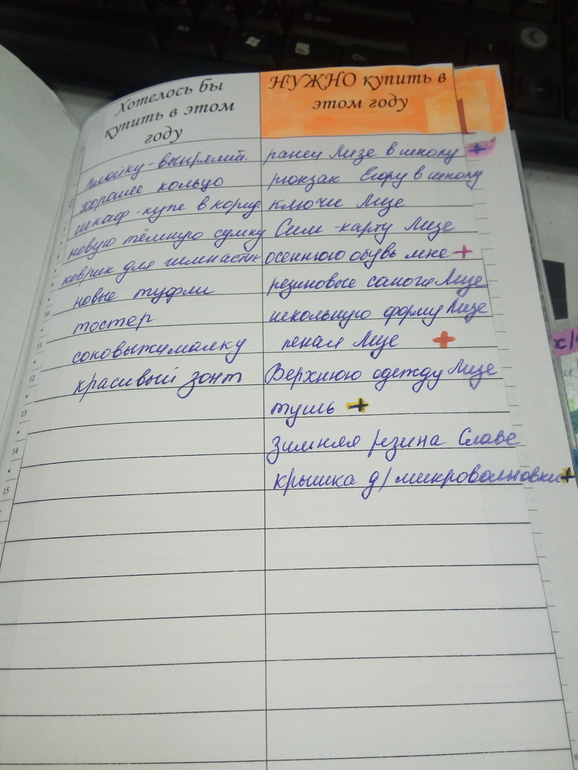 Хотелось бы
купить в этом
году
плойку-выпрямит.
хорошее кольцо
шкаф-купе в корид
новую тёмную сумку
коврик для гимнастик
новые туфли
тостер
соковыжималку
красивый зонт
НУЖНО купить в
этом году
1
ранец Лизе в школу +
рюкзак Егору в школу
ключи Лизе
Сим-карту Лизе
осеннюю обувь мне +
резиновые сапоги Лизе
школьную форму Лизе
пенал Лизе +
Верхнюю одежду Лизе
тушь +
зимняя резина Славе
крышка д/микроволновки +
11
12
13
14
15